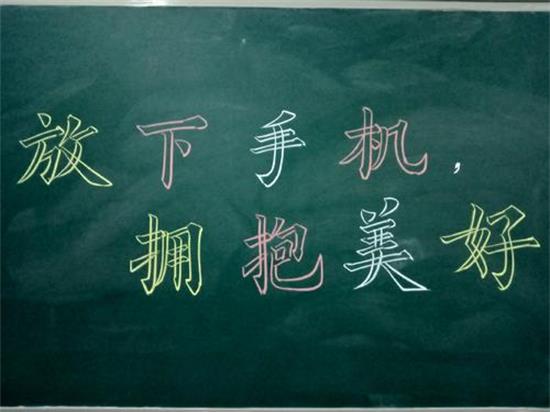 放下手机,
拥抱美好